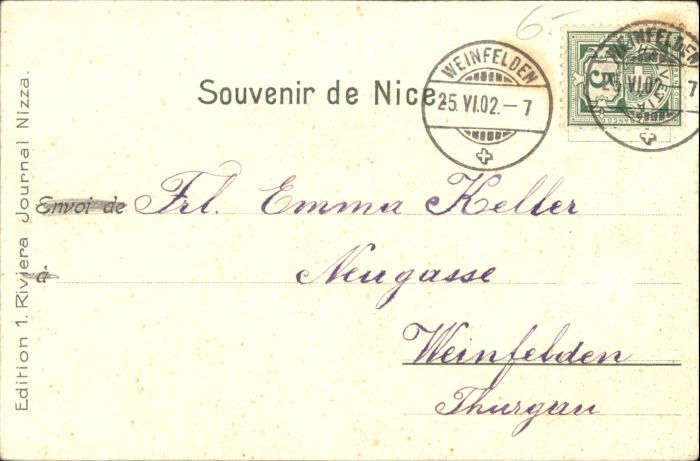 6.-
WEINFELDEN
25.VI.02.-7
WEINFELDEN
25.VI.02.-7
5
Souvenir de Nice
Envoi de Frl. Emma Keller
à Neugasse
Weinfelden
Thurgau
Edition 1. Riviera Journal Nizza.